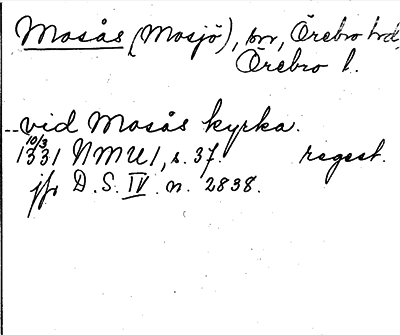 Mosås (Mosjö), sn, Örebro hd,
Örebro l.
--vid Mosås kyrka.
10/3
1331 NMU 1, s. 37. regest.
jfr D.S. IV. n. 2838.